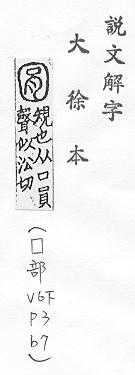 説文解字
大徐本
規也从囗肙
聲似沿切
（囗部 V6下 P3 b7）